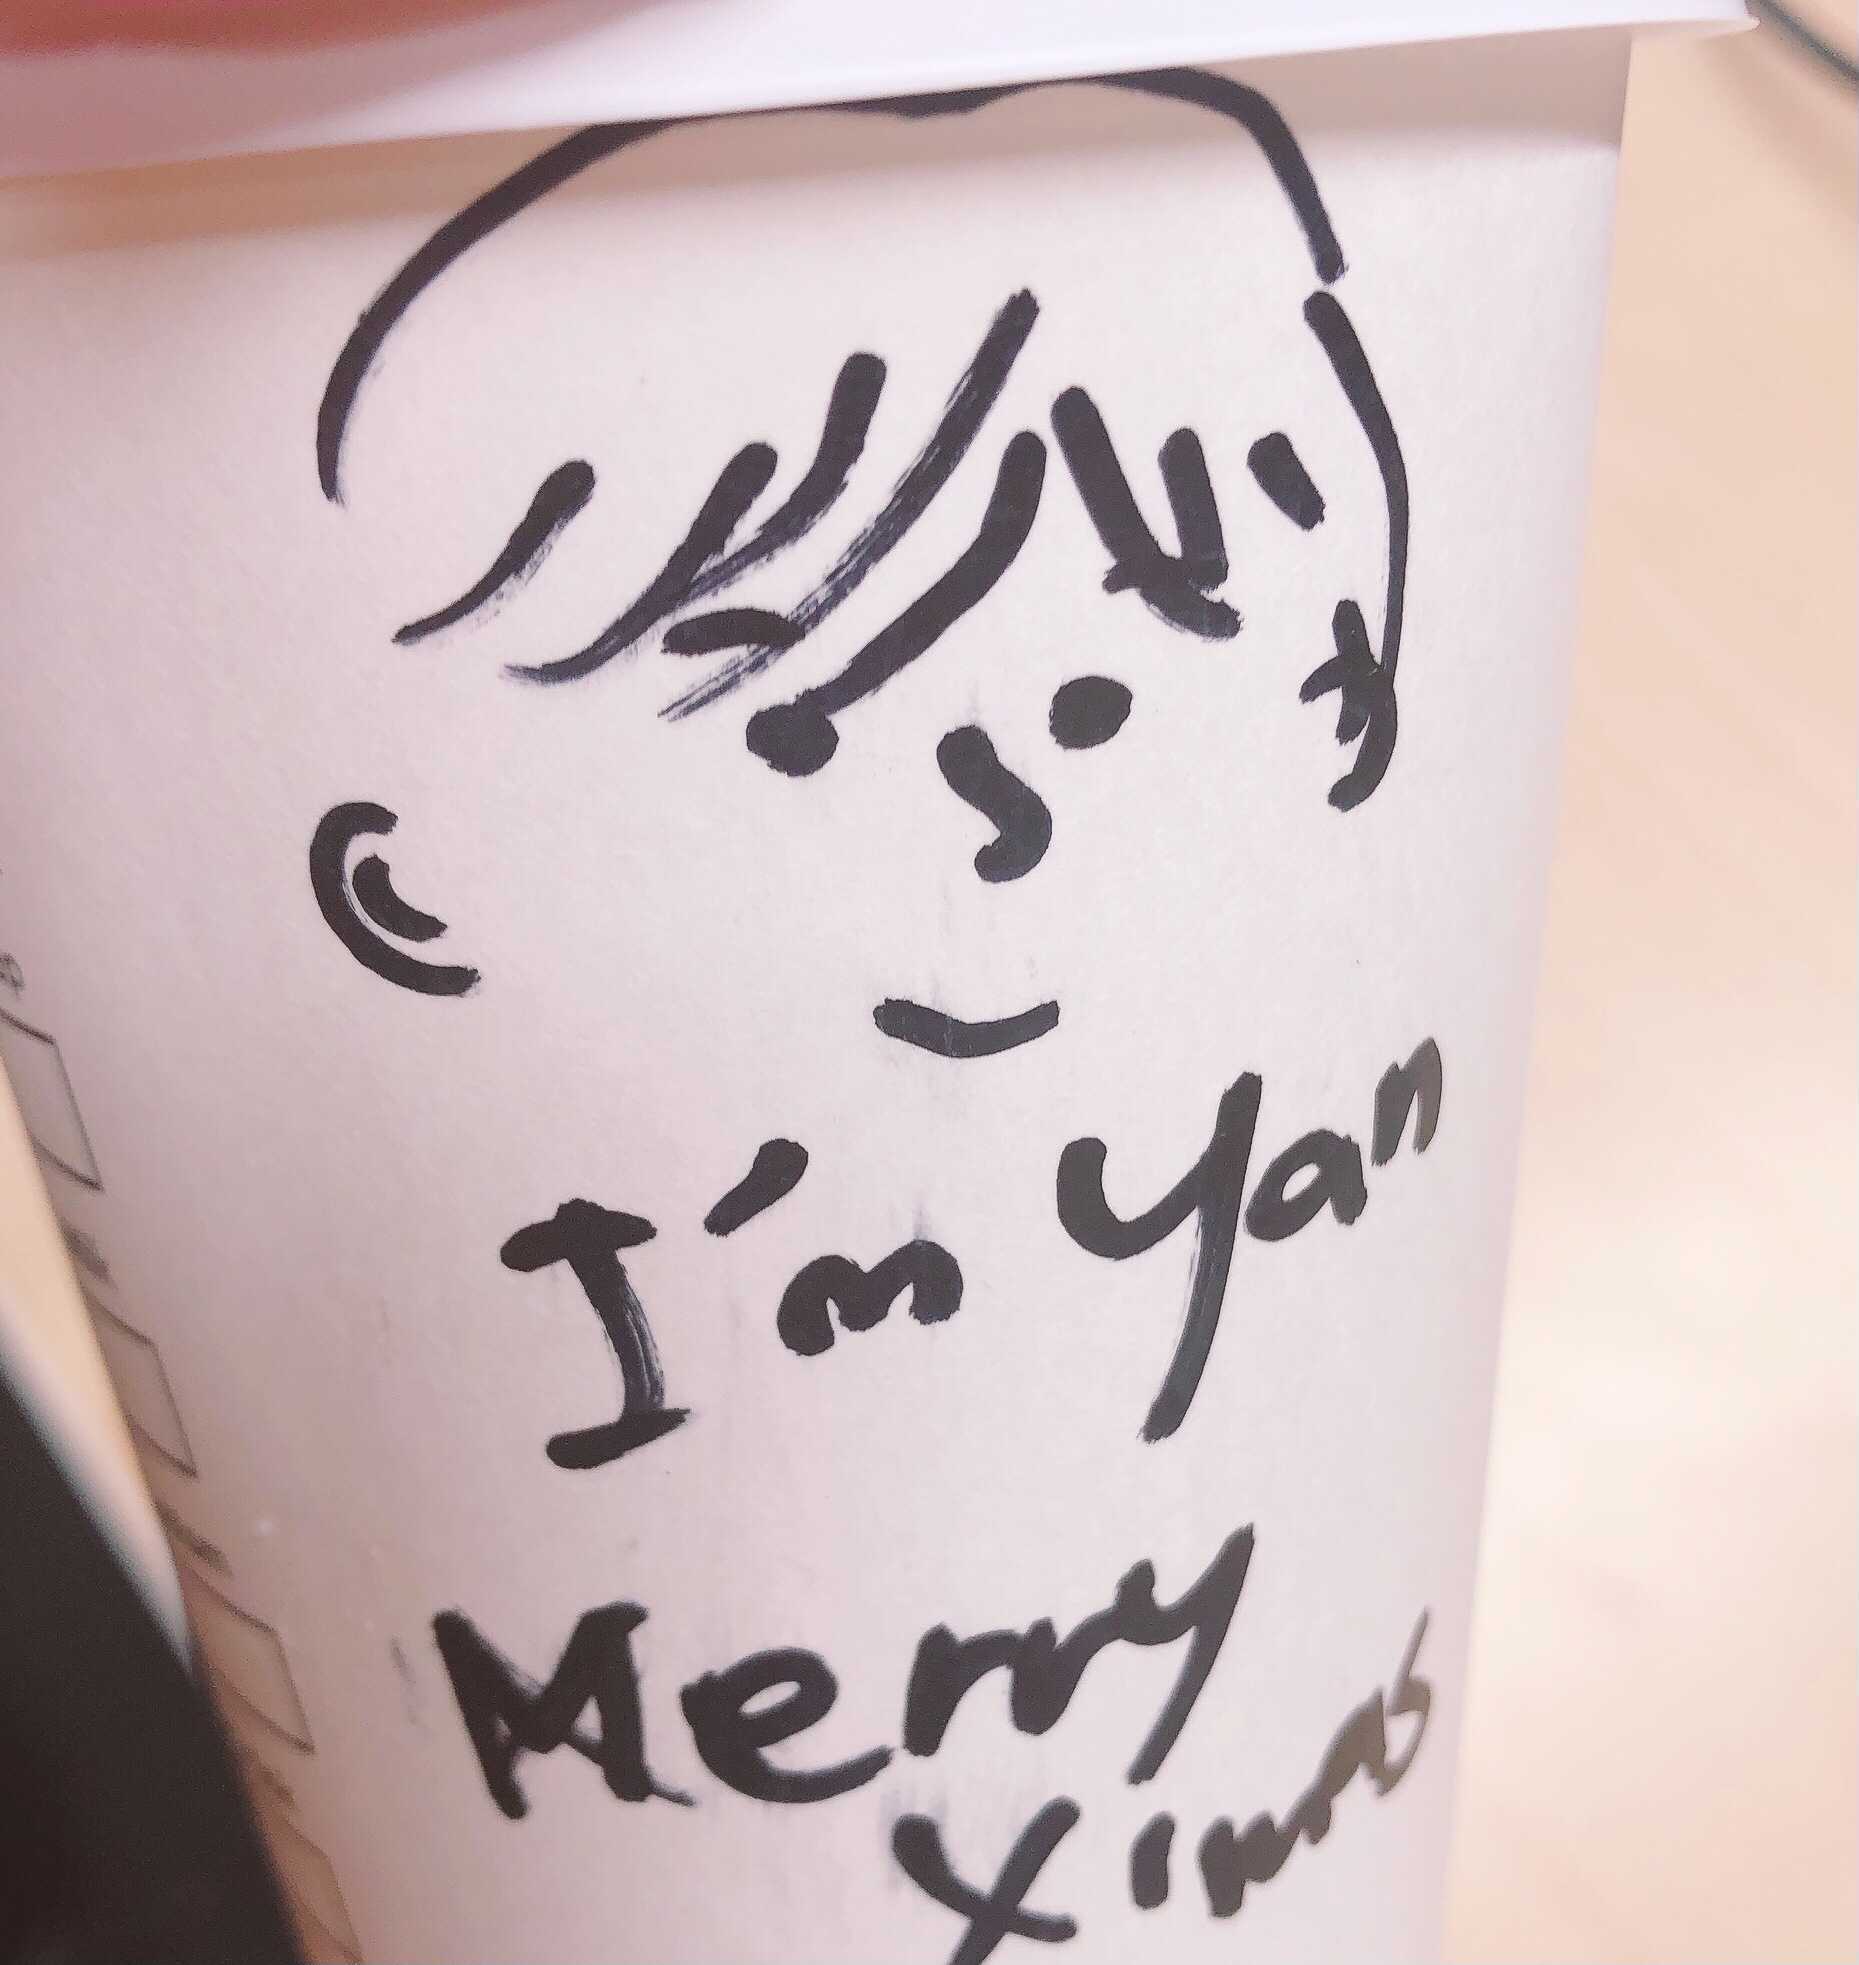 I'm Yan
Merry
X'mas